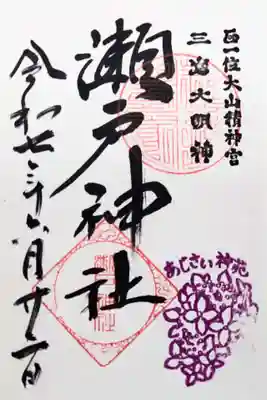 正一位大山積神宮
三島大明神
瀬戸神社
令和七年六月廿二日
あじさい神苑